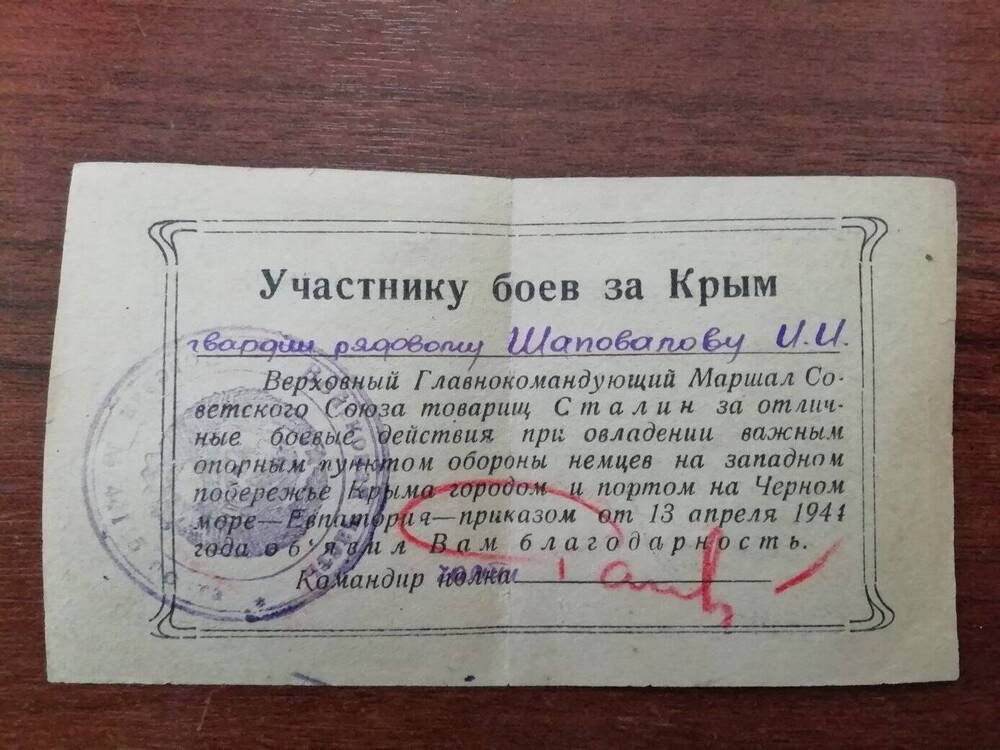 Участнику боев за Крым
гвардии рядовому Шаповалову И.И.
Верховный Главнокомандующий Маршал Со-
ветского Союза товарищ Сталин за отлич-
ные боевые действия при овладении важным
опорным пунктом обороны немцев на западном
побережье Крыма городом и портом на Черном
море—Евпатория—приказом от 13 апреля 1944
года об'явил Вам благодарность.
Командир полка